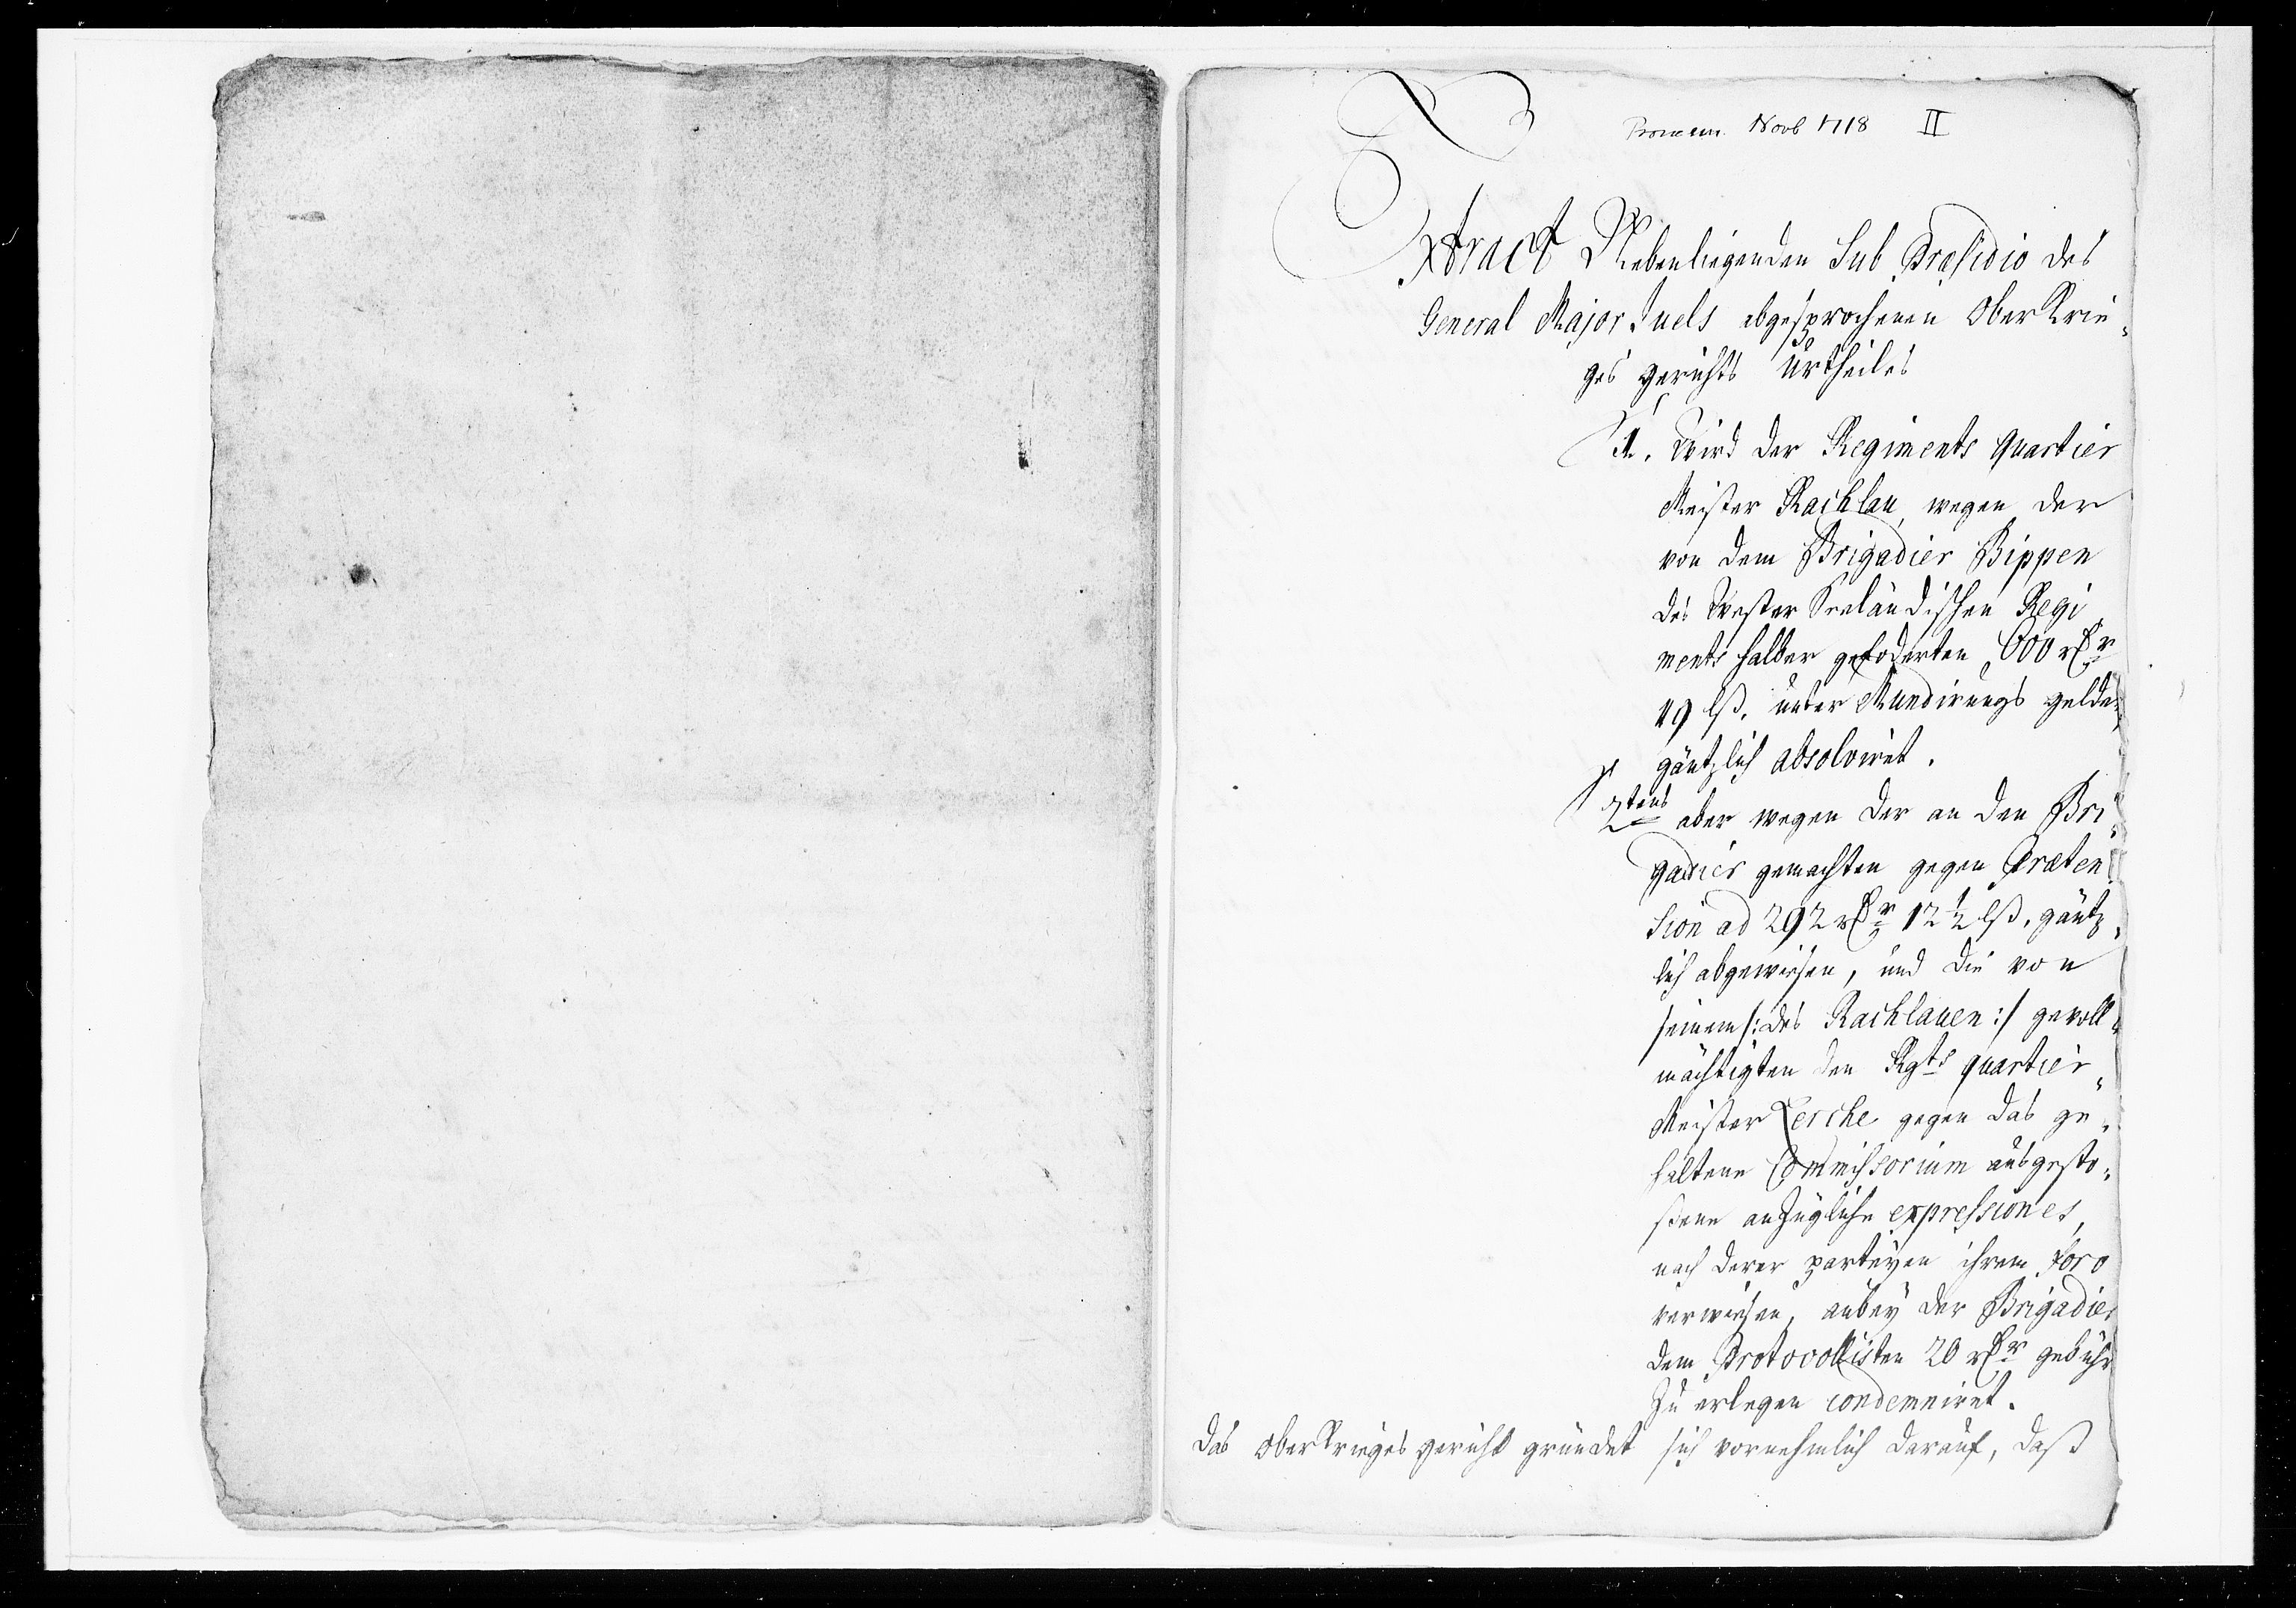 Novb 1718 II
Extract Nebenliegenden Sub Præsidio des
General Major Juels abgesprochenen OberKrie-
ges gerichts Urtheiles
1. Wird der Regiments quartier
Meister Rachlau, wegen der
von dem Brigadier Bippen
des Wester Seeländischen Regi
ments halber gefoderten 600 rdr
49 lß. unter Mundirungs gelder
gäntzlich absolviret.
2tens aber wegen der an den Bri-
gadier gemachten gegen Præten
sion ad 292 rdr 12½ lß. gäntz-
lich abgewiesen, und die von
seinem /: des Rachlauen :/ gevoll-
mächtigten den Rgts quartier-
Meister Lerche gegen das ge-
haltene Commissorium ausgesto-
ßene anzügliche expressiones,
nach derer parteyen ihrem foro
verwiesen, anbey der Brigadier
dem Protocollisten 20 rdr gebühr
zu erlegen condemniret.
Das OberKrieges gericht gründet sich vornehmlich darauf, daß